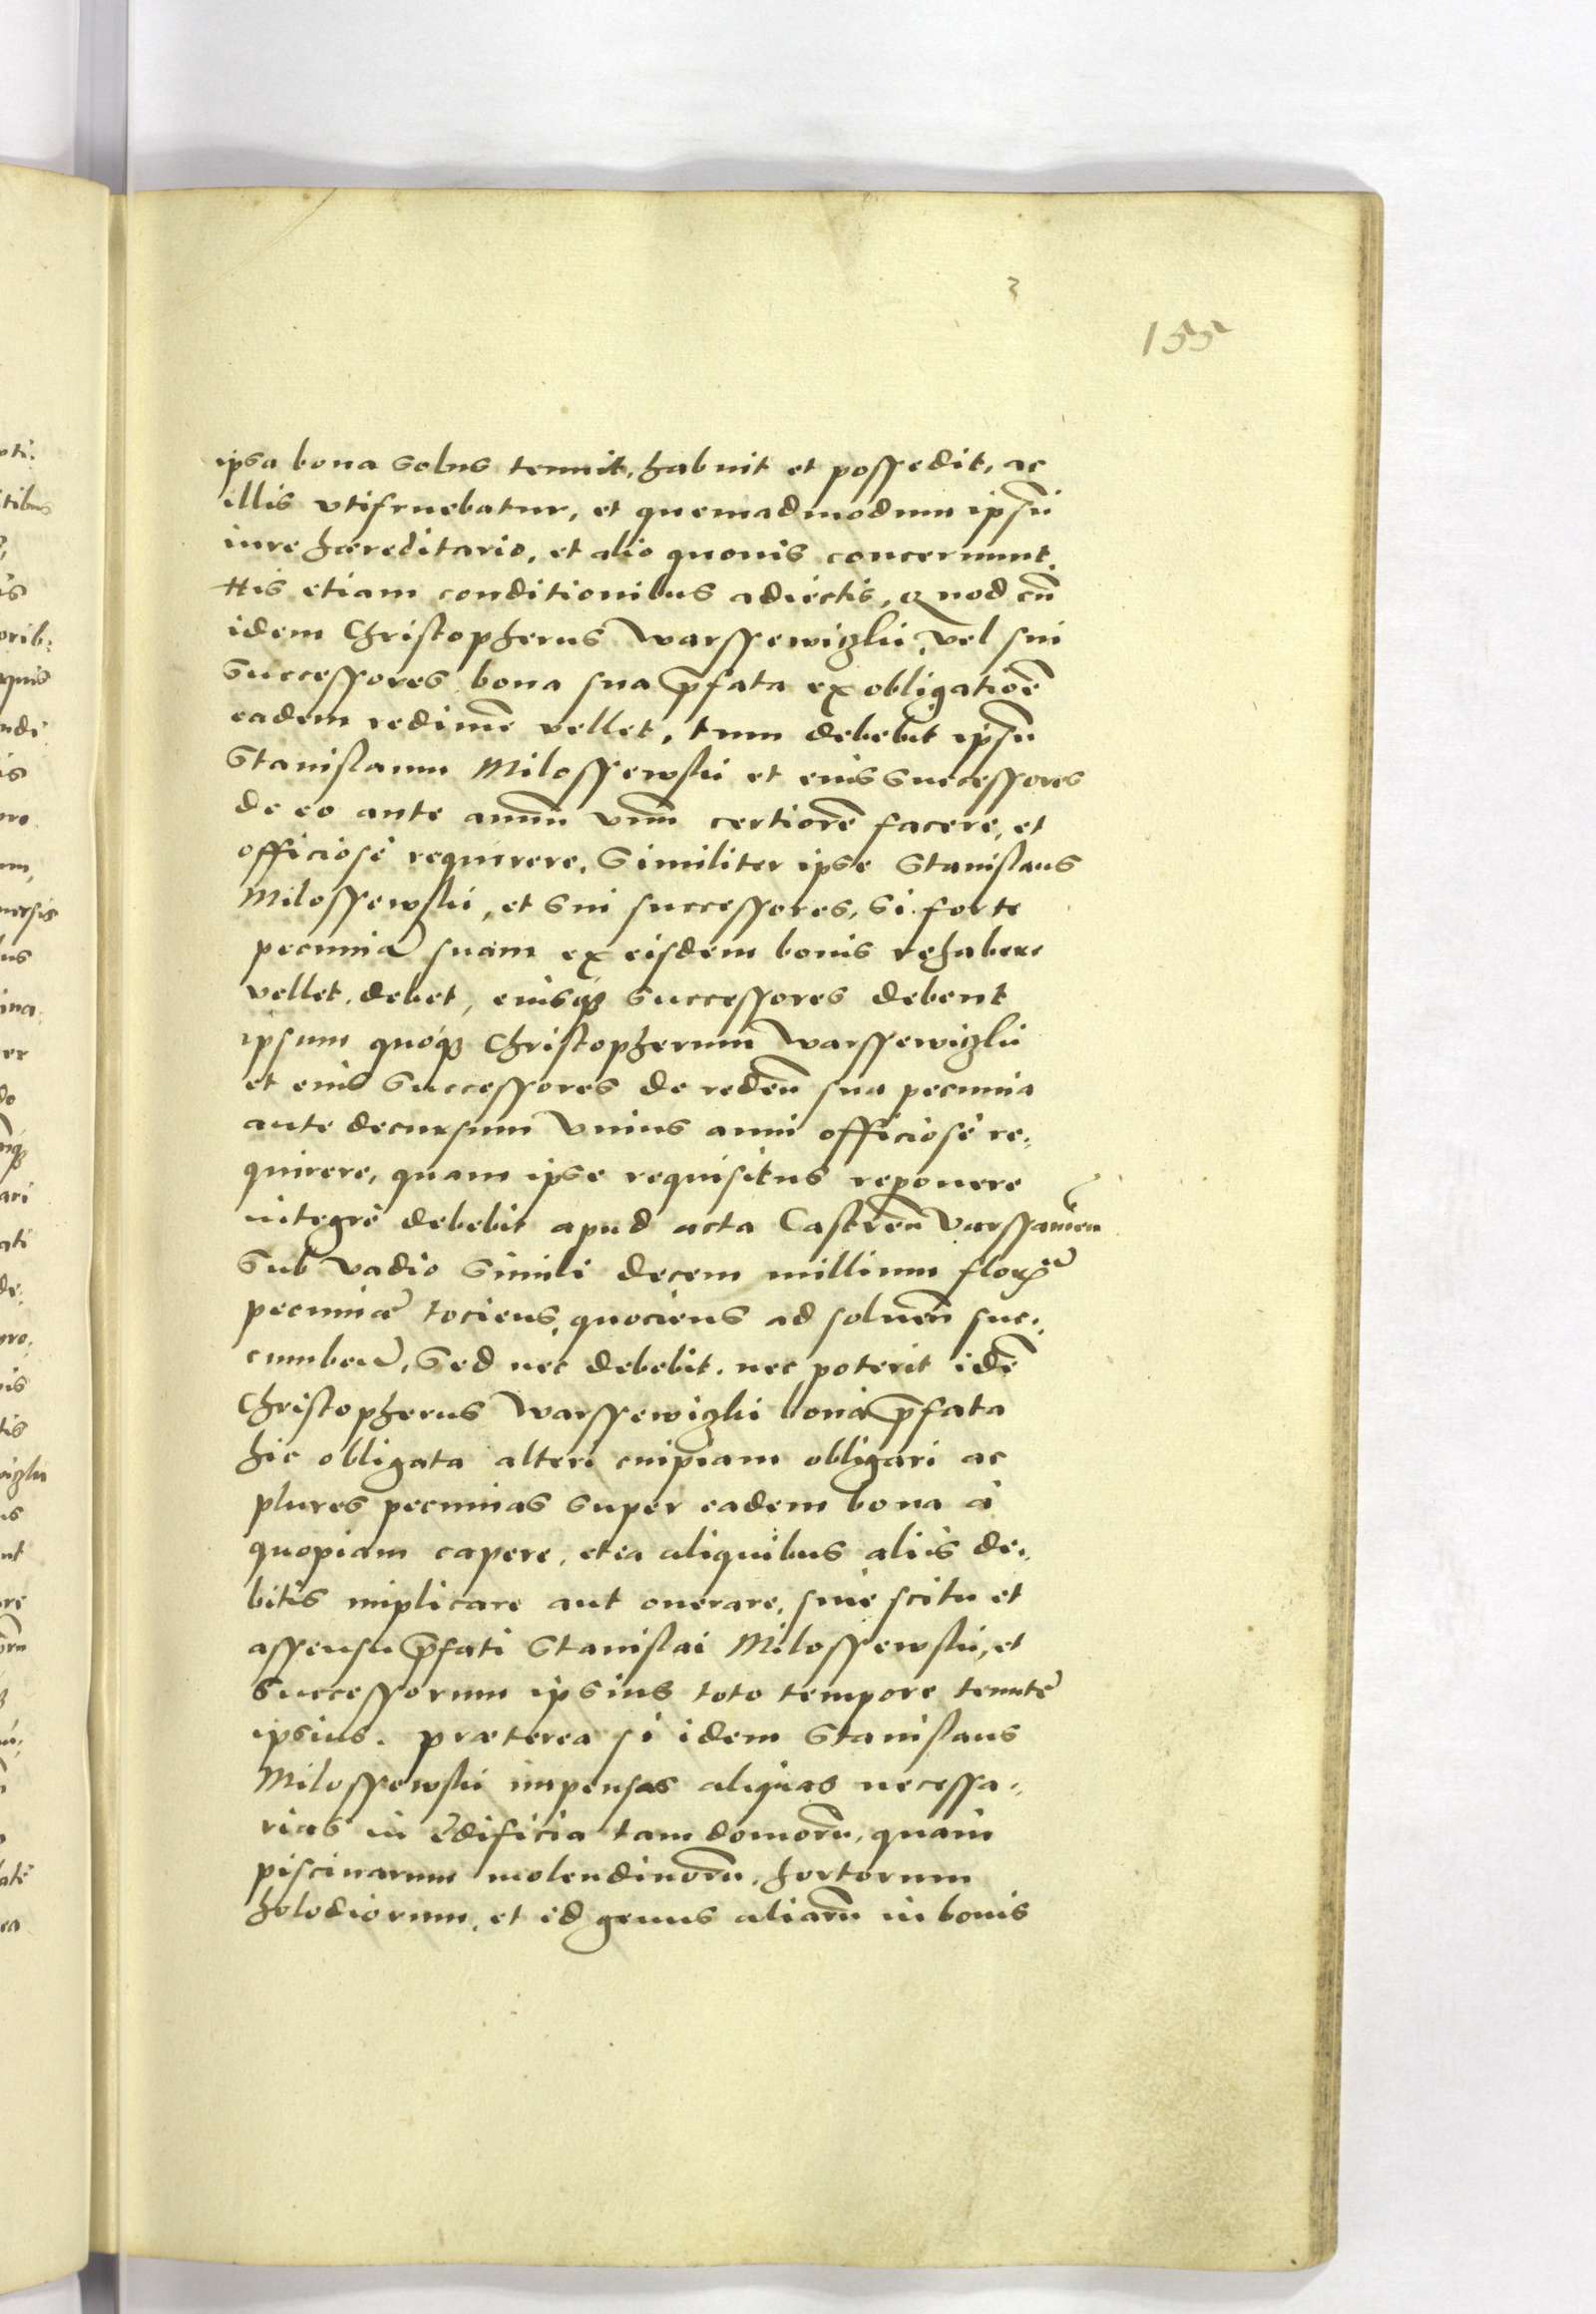 155
ipsa bona solus tenuit, habuit et possedit, ac
illis vtifruebatur, et quemadmodum ipsū
iure hæreditario, et alio quouis concernunt.
His etiam conditionibus adiectis, quod cū
idem Christopherus Warssewiczki, vel sui
successores bona sua p̄fata ex obligatiōe
eadem redimē vellet, tum debebit ipsū
Stanislaum Milossewski et eius successores
de eo ante annū vnū certiorē facere, et
officiosè requirere, Similiter ipse Stanislaus
Milossewski, et sui successores, si forte
pecuniā suam ex eisdem bonis rehabere
vellet, debet, eiusq3 successores debent
ipsum quoq3 Christopherum Warssewiczki
et eius successores de redeū sua pecunia
ante decursum vnius anni officiosè re,
quirere, quam ipse requisitus reponere
integrè debebit apud acta Castreñ Varssauień
Sub vadio simili decem millium florę
pecuniæ tociens, quociens ad solueñ suc,
cumbeū, Sed nec debebit, nec poterit idē
Christopherus Warssewiczki bona p̄fata
hic obligata alteri cuipiam obligari ac
plures pecunias super eadem bona à
quopiam capere, et ea aliquibus aliis de,
bitis implicare aut onerare, sine scitu et
assensu p̄fati Stanislai Milossewski, et
Successorum ipsius toto tempore tenutę
ipsius. præterea si idem Stanislaus
Milossewski impensas aliquas necessa,
rias in ędificia tam domorū, quam
piscinarum molendinorū, hortorum
holodiorum, et id genus aliarū in bonis